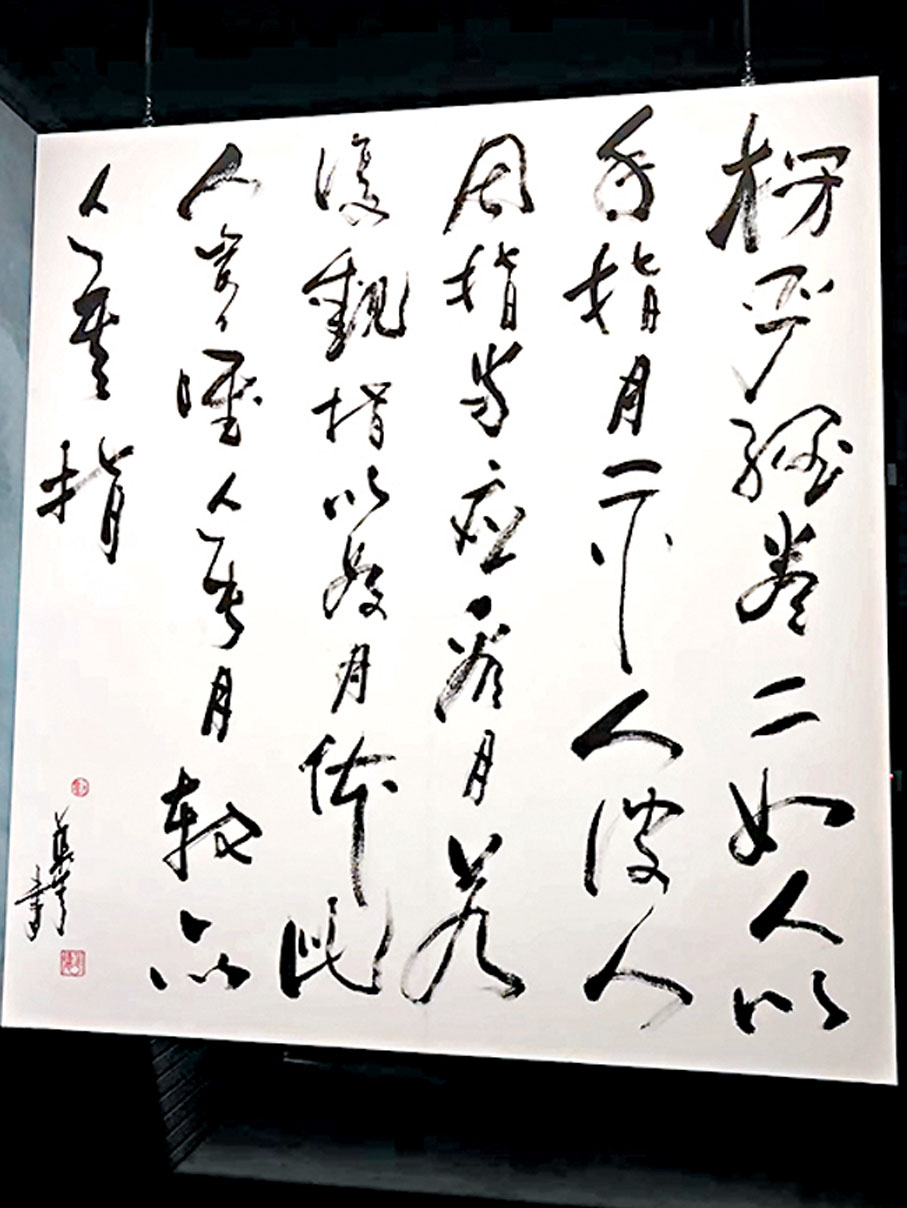 楞严經卷二如人以
手指月示人彼人
因指当应看月若
復觀指以為月体此
人豈唯亡失月輪亦
亡其指
書